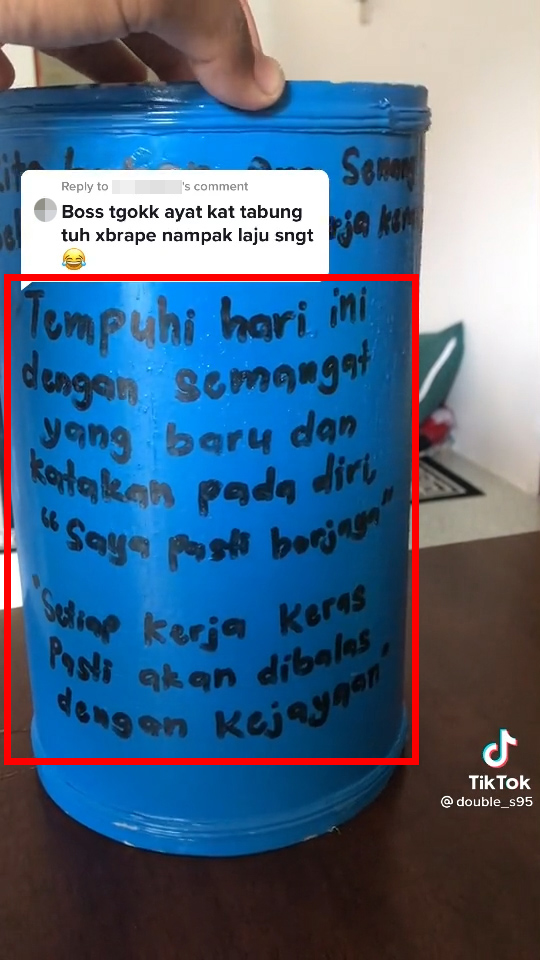 Semang
Reply to 's comment
Boss tgokk ayat kat tabung
tuh xbrape nampak laju sngt
😂
Tempuhi hari ini
dengan semangat
yang baru dan
katakan pada diri,
"Saya pasti berjaya"
"Setiap kerja keras
pasti akan dibalas
dengan kejayaan"
TikTok
@double_s95